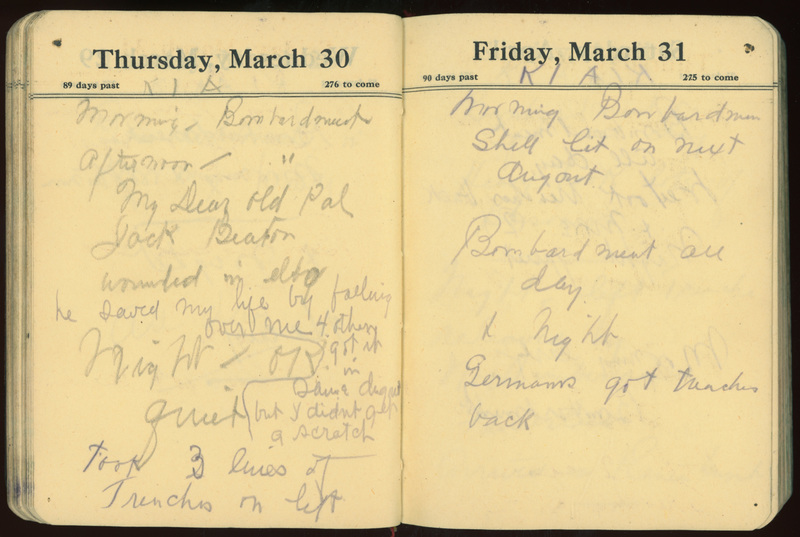 Thursday, March 30
89 days past
276 to come
K I A
Morning - Bombardment
Afternoon - "
My Dear old Pal
Jack Beaton
wounded in elbo
he saved my life by falling
over me 4 others
got it
in
Same dugout
but I didnt get
a scratch
Night - OK
quiet
Took 3 lines of
Trenches on left
Friday, March 31
90 days past
225 to come
K I A
Morning Bombardmen
Shell lit on next
dugout
Bombardment all
day
& Night
Germans got trenches
back